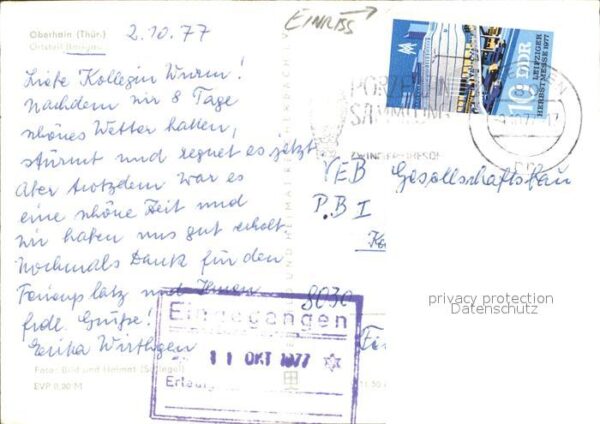 EINRISS
Oberhain (Thür.)
Ortsteil
2.10.77
Liebe Kollegin Wurm!
Nachdem wir 8 Tage
schönes Wetter hatten,
stürmt und regnet es jetzt.
Aber trotzdem war es
eine schöne Zeit und
wir haben uns gut erholt
Nochmals Dank für den
Ferienplatz und Ihnen
frdl. Grüße!
Erika
Foto: Bild und Heimat
EVP 0,20 M
10 DDR
LEIPZIGER
HERBSTMESSE 1977
PORZELLAN
SAMMLUNG
ZWINGER
VEB Gesellschaftsbau
P.B I
8030
Eingegangen
11 OKT 1977
privacy protection
Datenschutz